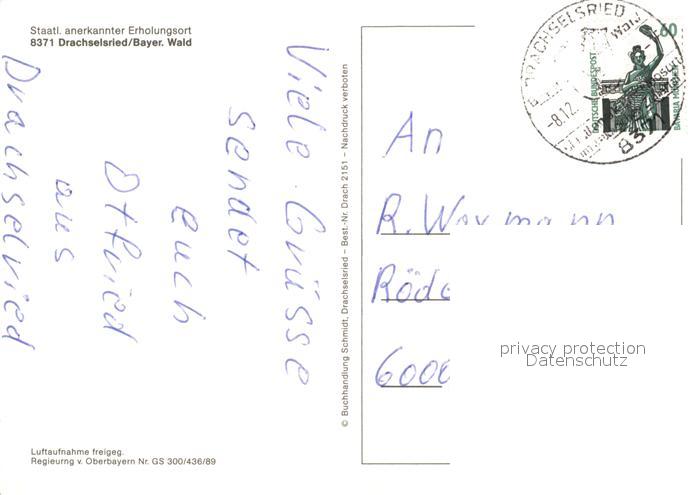 Staatl. anerkannter Erholungsort
8371 Drachselsried/Bayer. Wald
Viele Grüsse
sendet
euch
Otfried
aus
Drachselsried
Luftaufnahme freigeg.
Regieurng v. Oberbayern Nr. GS 300/436/89
© Buchhandlung Schmidt, Drachselsried – Best.-Nr. Drach 2151 – Nachdruck verboten
DRACHSELSRIED
-8.12.
8371
60
DEUTSCHE BUNDESPOST
BAVARIA MÜNCHEN
An
R. Weymann
6000
privacy protection
Datenschutz